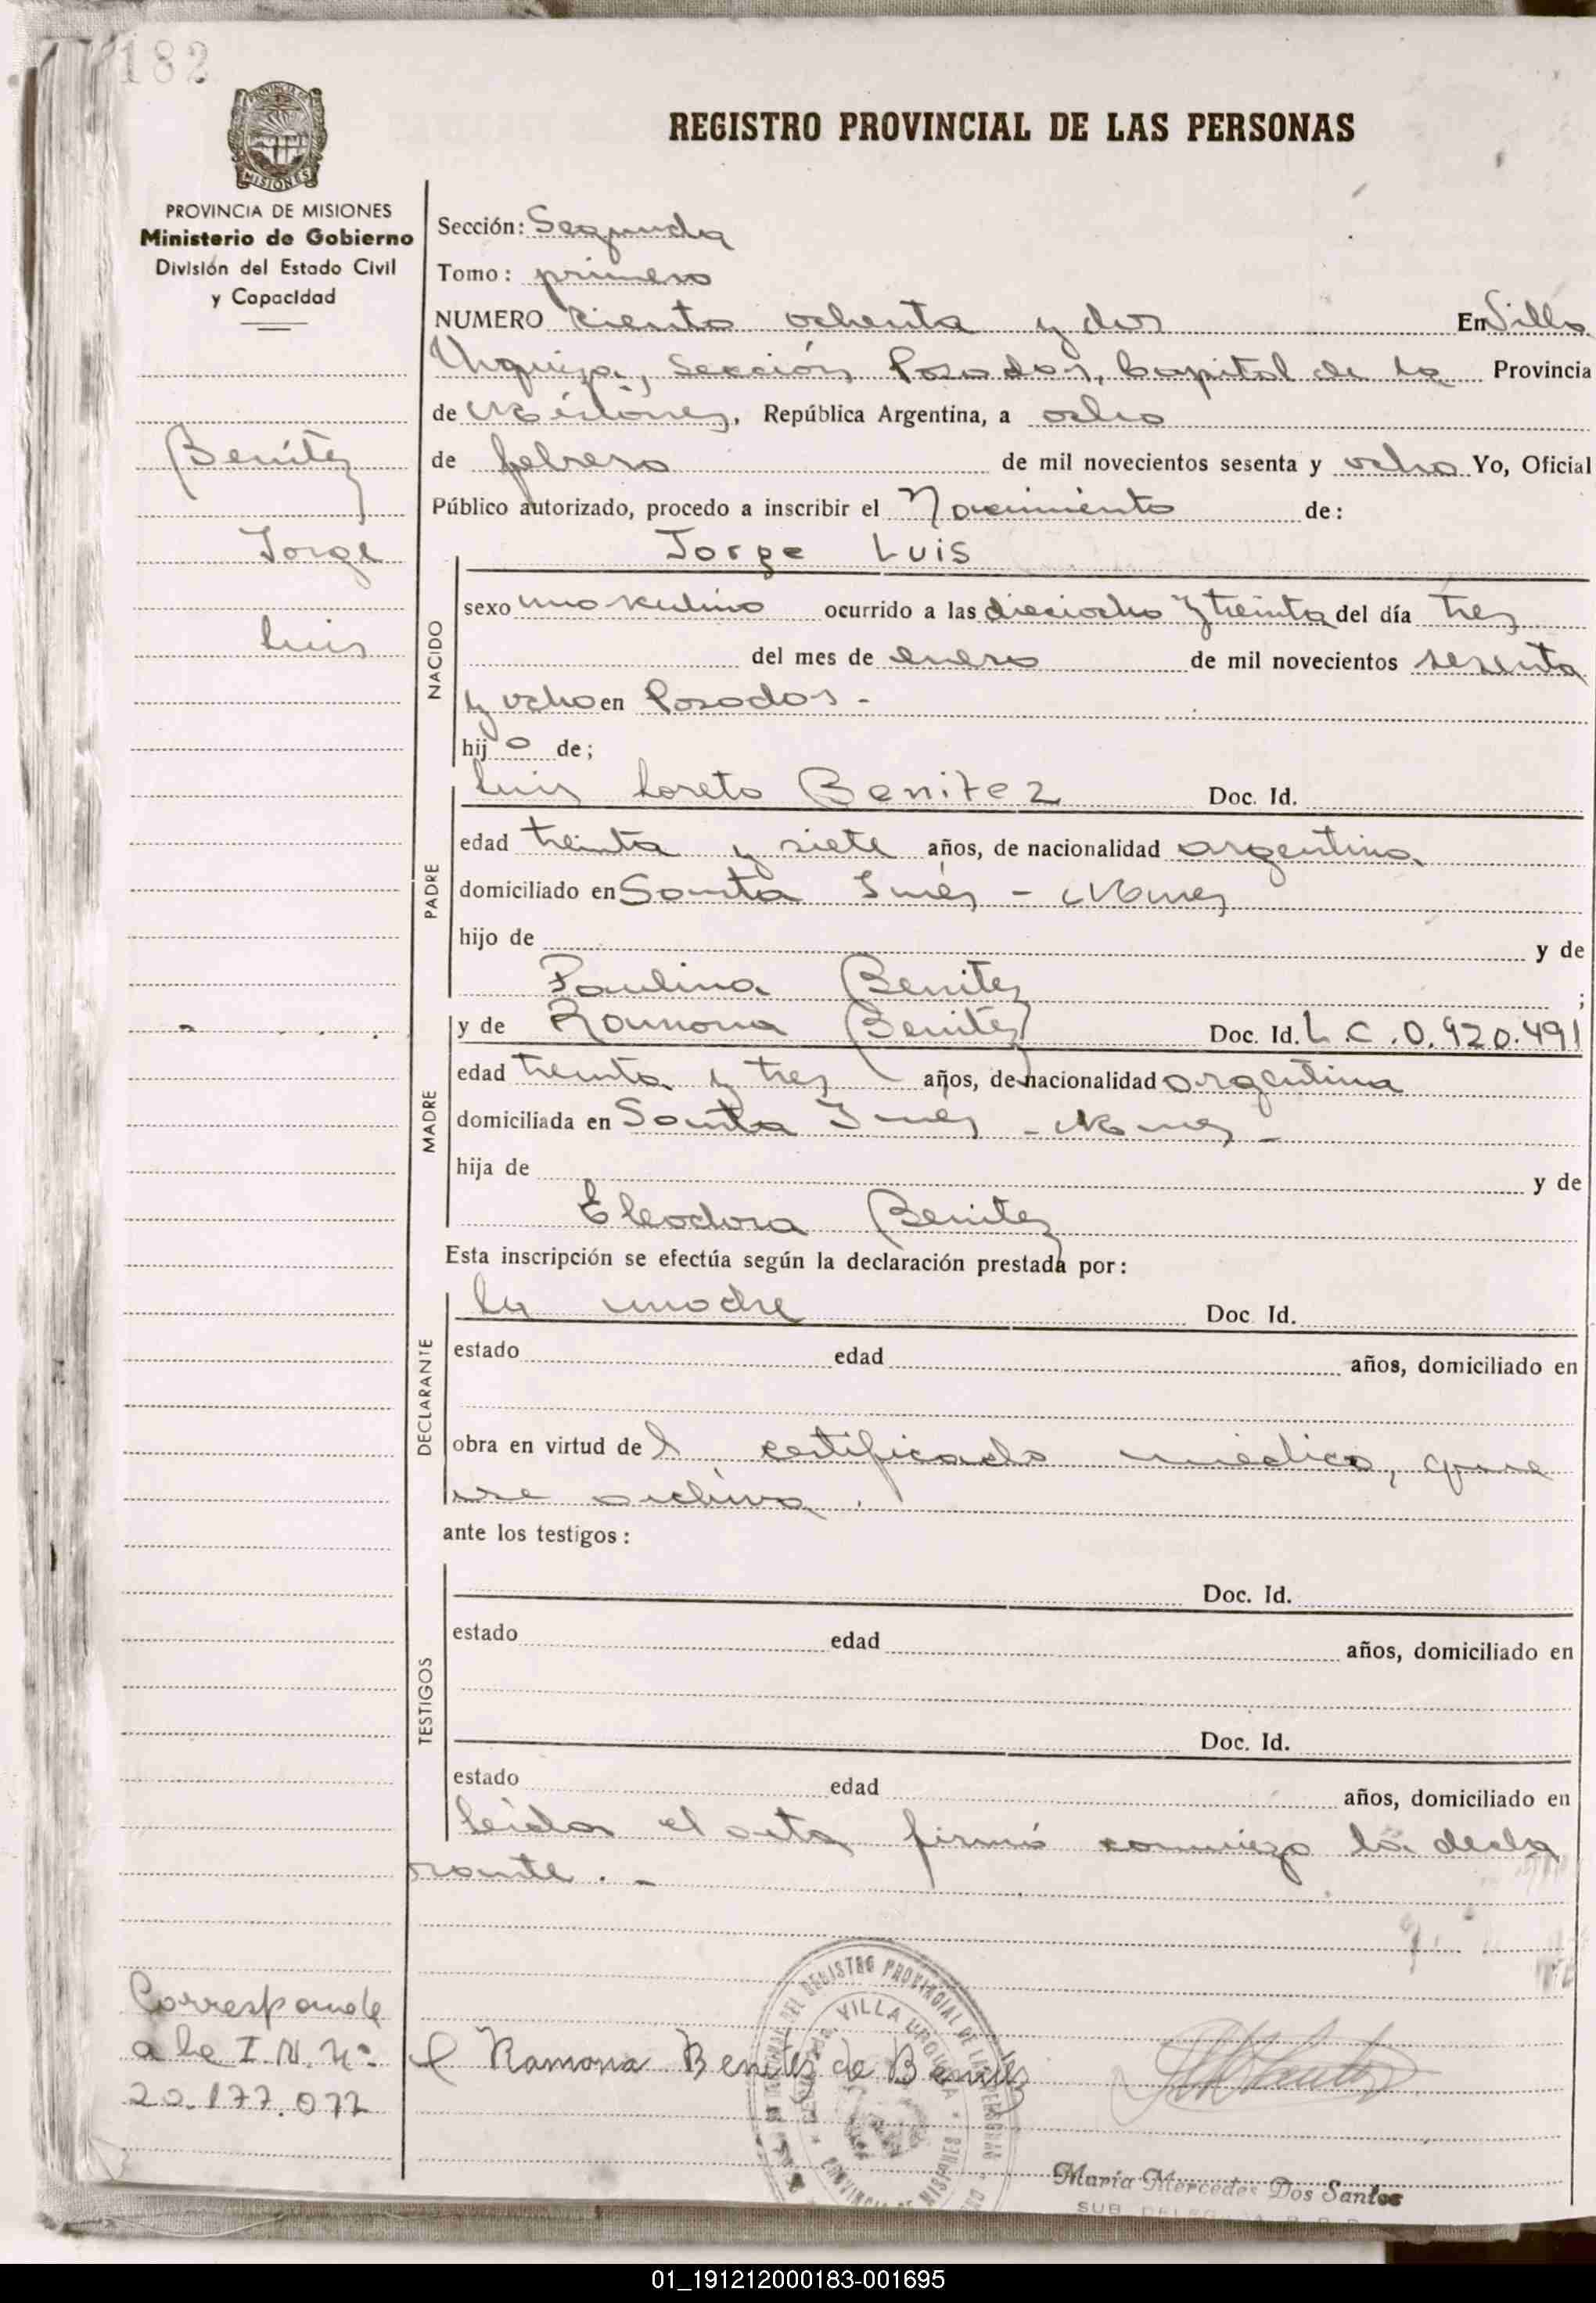 182
REGISTRO PROVINCIAL DE LAS PERSONAS
PROVINCIA DE MISIONES
Ministerio de Gobierno
División del Estado Civil
y Capacidad
Sección: Segunda
Tomo: primero
NUMERO ciento ochenta y dos En Villa
Urquiza, Sección Posadas, Capital de la Provincia
de Misiones, República Argentina, a ocho
de febrero de mil novecientos sesenta y ocho Yo, Oficial
Público autorizado, procedo a inscribir el Nacimiento de:
Benítez
Jorge
Luis
Jorge Luis
NACIDO
sexo masculino ocurrido a las dieciocho y treinta del día tres
del mes de enero de mil novecientos sesenta
y ocho en Posadas -
hijo de;
PADRE
Luis Loreto Benitez Doc. Id.
edad treinta y siete años, de nacionalidad argentina
domiciliado en Santa Inés - Mnes
hijo de y de
Paulina Benitez ;
MADRE
y de Ramona Benitez Doc. Id. L.C.0.920.491
edad treinta y tres años, de nacionalidad argentina
domiciliada en Santa Inés - Mnes -
hija de y de
Eleodora Benitez
Esta inscripción se efectúa según la declaración prestada por:
DECLARANTE
la madre Doc. Id.
estado edad años, domiciliado en
obra en virtud del certificado médico, que
se archiva.
ante los testigos:
TESTIGOS
Doc. Id.
estado edad años, domiciliado en
Doc. Id.
estado edad años, domiciliado en
leída el acta firmó conmigo la decla
rante. -
Corresponde
a la I.N. Nº
20.177.077
Ramona Benitez de Benitez
VILLA URQUIZA
PROVINCIA DE MISIONES
María Mercedes Dos Santos
01_191212000183-001695